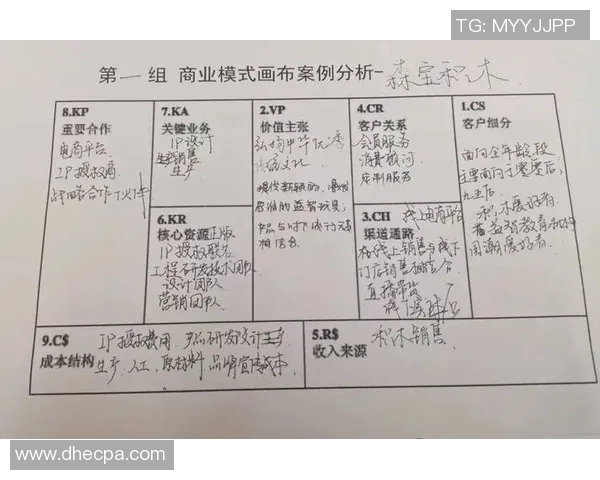 TG: MYYJJPP
第一组 商业模式画布案例分析-森宝积木
8.KP
重要合作
电商平台
IP授权商
战略合作伙伴
7.KA
关键业务
IP设计
生产销售
生产
6.KR
核心资源正版
IP授权联名
工程研发技术团队
设计团队
营销团队
2.VP
价值主张
弘扬中华优秀
传统文化
相结合
4.CR
客户关系
会员服务
消费顾问
定制服务
3.CH 线上电商平台
渠道通路
线上销售与线下
门店销售相结合
直播带货
1.CS
客户细分
面向全年龄段
主要面向零零后,
九零后.
积木爱好者.
着益智教育
国潮爱好者.
9.C$
成本结构
IP授权费用 产品研发设计
生产、人工、原材料、品牌宣传成本.
5.R$
收入来源
积木销售
www.dhecpa.com